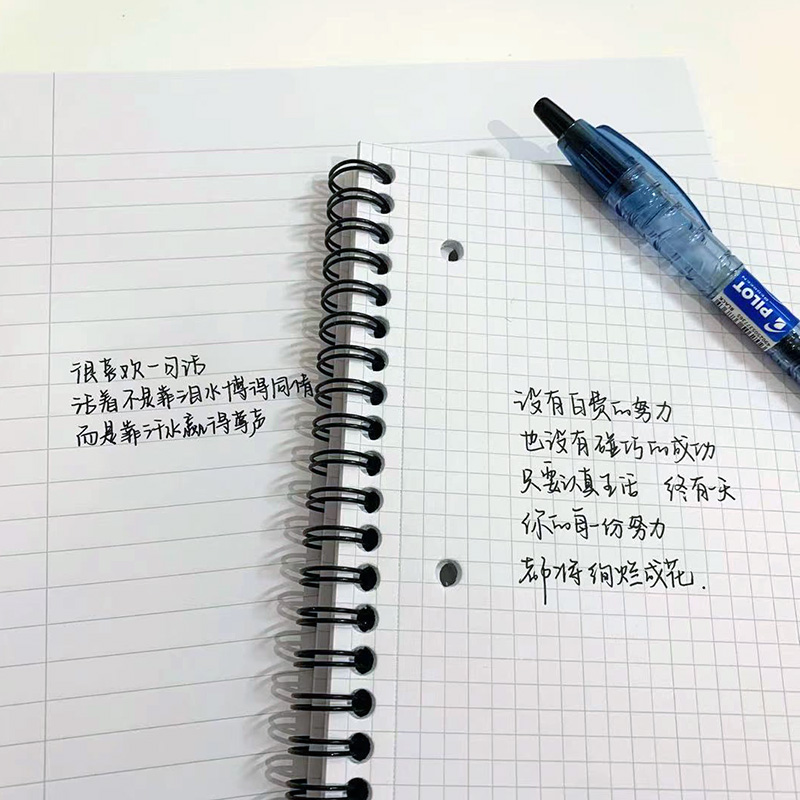 很喜欢一句话
活着不是靠泪水博得同情
而是靠汗水赢得尊声
没有白费的努力
也没有碰巧的成功
只要认真生活 终有一天
你的每一份努力
都将绚烂成花.
PILOT